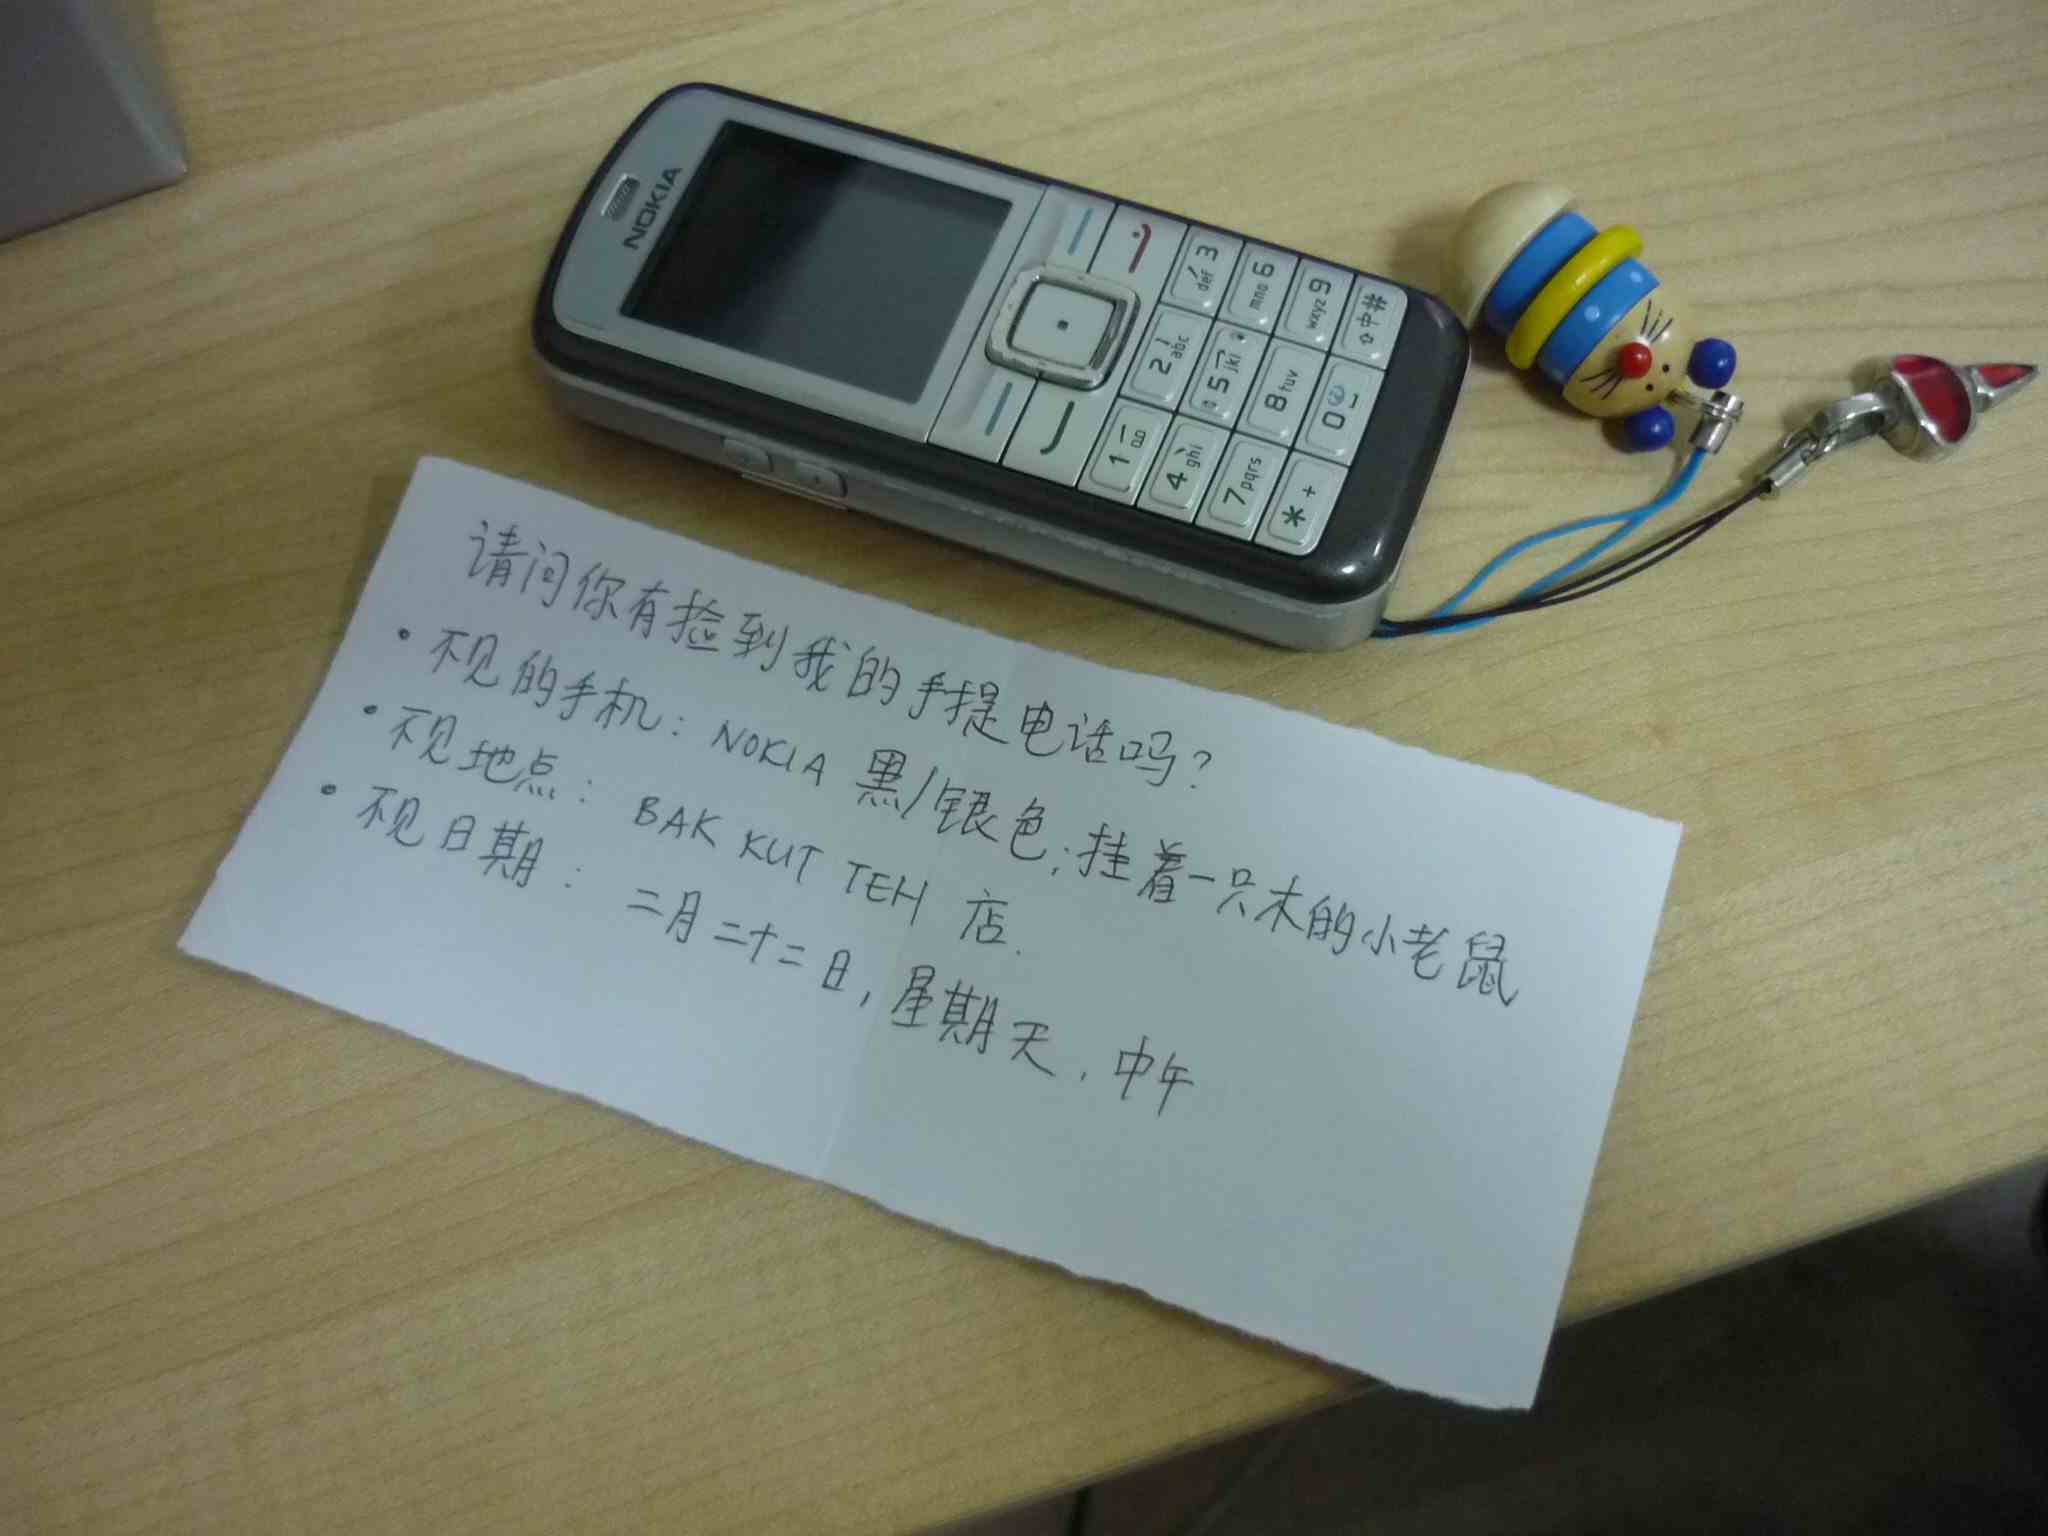 NOKIA
1
2 abc
3 def
4 ghi
5 jkl
6 mno
7 pqrs
8 tuv
9 wxyz
* +
0
中 #
请问你有捡到我的手提电话吗?
• 不见的手机: NOKIA 黑/银色; 挂着一只木的小老鼠
• 不见地点: BAK KUT TEH 店.
• 不见日期: 二月二十二日, 星期天, 中午